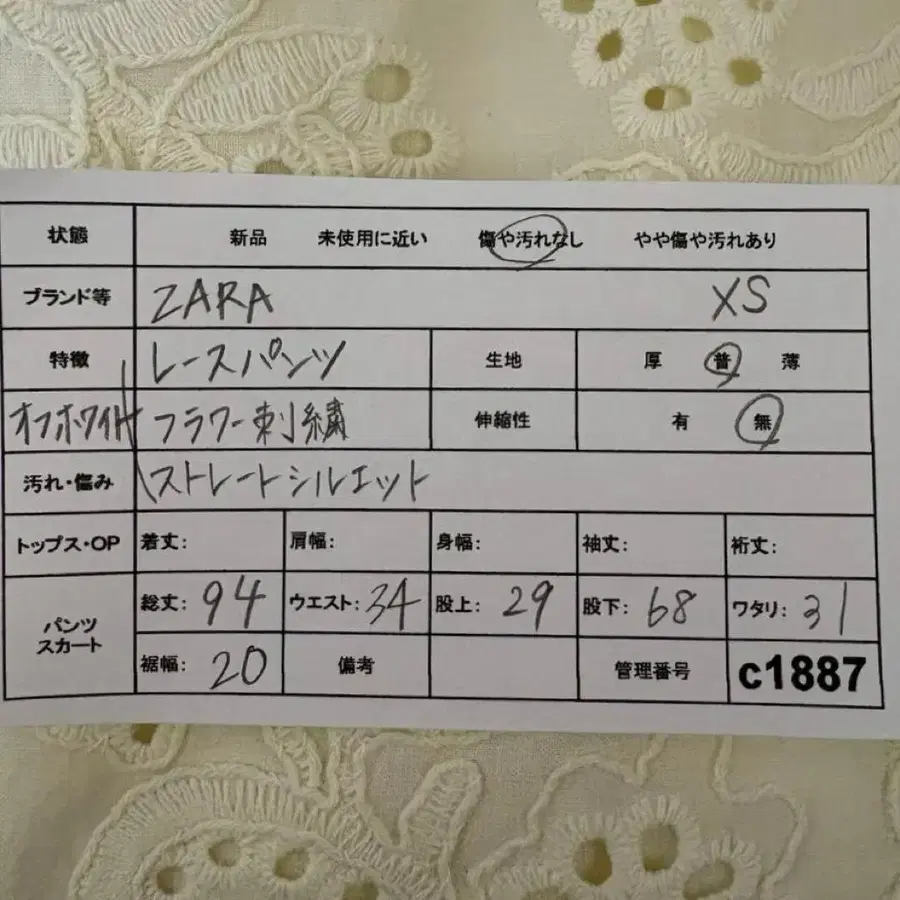 状態 新品 未使用に近い 傷や汚れなし やや傷や汚れあり
ブランド等 ZARA XS
特徴 レースパンツ 生地 厚 普 薄
オフホワイト フラワー刺繍 伸縮性 有 無
汚れ・傷み ストレートシルエット
トップス・OP 着丈: 肩幅: 身幅: 袖丈: 裄丈:
パンツ スカート 総丈: 94 ウエスト: 34 股上: 29 股下: 68 ワタリ: 31
裾幅: 20 備考 管理番号 c1887